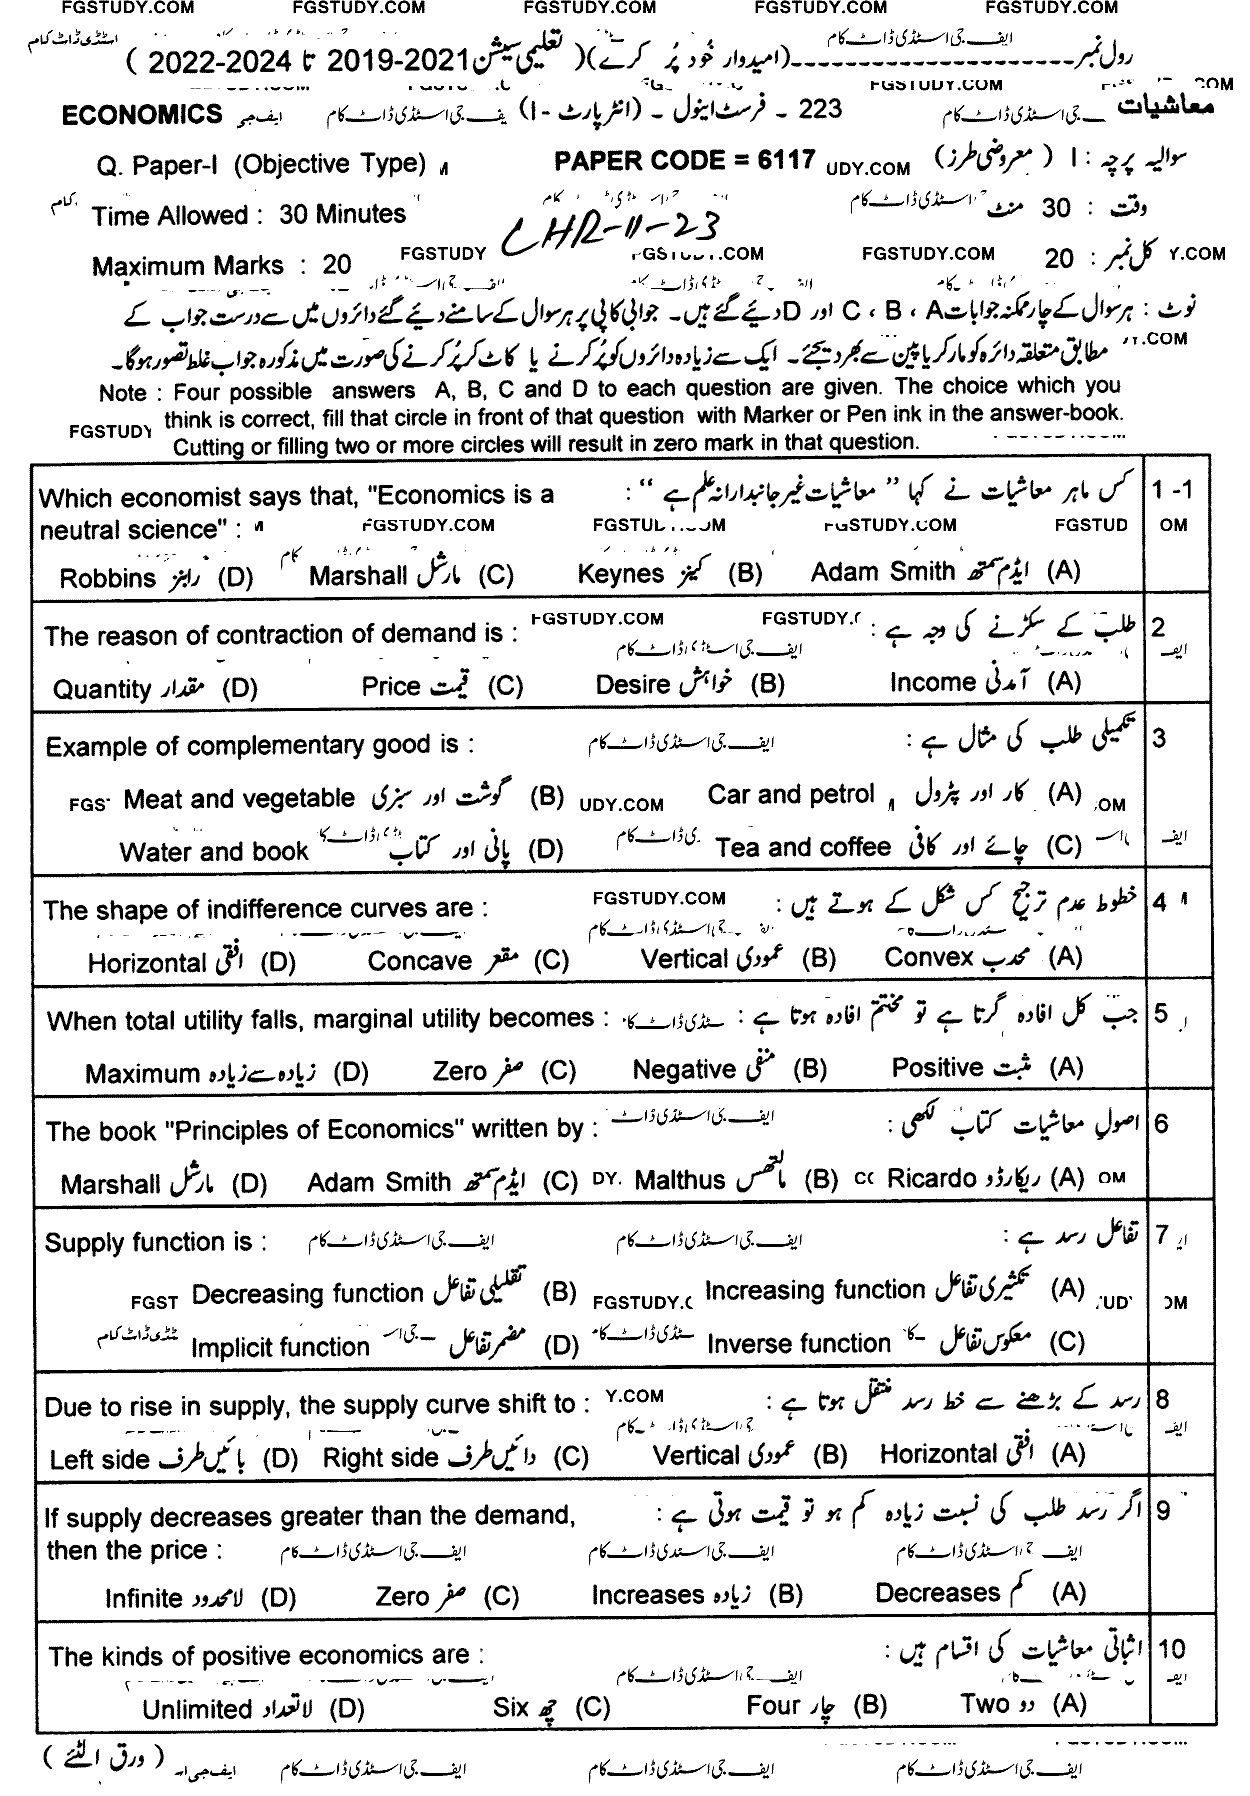 FGSTUDY.COM FGSTUDY.COM FGSTUDY.COM FGSTUDY.COM FGSTUDY.COM
رول نمبر---------------------(امیدوار خُود پُر کرے)( تعلیمی سیشن 2021-2019 تا 2024-2022 )
معاشیات 223 - فرسٹ اینول - (انٹر پارٹ - I) ECONOMICS
سوالیہ پرچہ : I ( معروضی طرز) PAPER CODE = 6117 Q. Paper-I (Objective Type)
وقت : 30 منٹ Time Allowed : 30 Minutes
LHR-11-23
کل نمبر : 20 Maximum Marks : 20
نوٹ : ہر سوال کے چار ممکنہ جوابات A ، B ، C اور D دیئے گئے ہیں۔ جوابی کاپی پر ہر سوال کے سامنے دیئے گئے دائروں میں سے درست جواب کے
مطابق متعلقہ دائرہ کو مارکر یا پین سے بھر دیجئے۔ ایک سے زیادہ دائروں کو پُر کرنے یا کاٹ کر پُر کرنے کی صورت میں مذکورہ جواب غلط تصور ہوگا۔
Note : Four possible answers A, B, C and D to each question are given. The choice which you
think is correct, fill that circle in front of that question with Marker or Pen ink in the answer-book.
Cutting or filling two or more circles will result in zero mark in that question.
1-1 کس ماہر معاشیات نے کہا " معاشیات غیر جانبدارانہ علم ہے " : Which economist says that, "Economics is a
neutral science" :
(A) ایڈم سمتھ Adam Smith (B) کینز Keynes (C) مارشل Marshall (D) رابنز Robbins
2 طلب کے سکڑنے کی وجہ ہے : The reason of contraction of demand is :
(A) آمدنی Income (B) خواہش Desire (C) قیمت Price (D) مقدار Quantity
3 تکمیلی طلب کی مثال ہے : Example of complementary good is :
(A) کار اور پٹرول Car and petrol (B) گوشت اور سبزی Meat and vegetable
(C) چائے اور کافی Tea and coffee (D) پانی اور کتاب Water and book
4 خطوط عدم ترجیح کس شکل کے ہوتے ہیں : The shape of indifference curves are :
(A) محدب Convex (B) عمودی Vertical (C) مقعر Concave (D) افقی Horizontal
5 جب کل افادہ گرتا ہے تو مختتم افادہ ہوتا ہے : When total utility falls, marginal utility becomes :
(A) مثبت Positive (B) منفی Negative (C) صفر Zero (D) زیادہ سے زیادہ Maximum
6 اصولِ معاشیات کتاب لکھی : The book "Principles of Economics" written by :
(A) ریکارڈو Ricardo (B) مالتھس Malthus (C) ایڈم سمتھ Adam Smith (D) مارشل Marshall
7 تفاعل رسد ہے : Supply function is :
(A) تکثیری تفاعل Increasing function (B) تقلیلی تفاعل Decreasing function
(C) معکوس تفاعل Inverse function (D) مضمر تفاعل Implicit function
8 رسد کے بڑھنے سے خط رسد منتقل ہوتا ہے : Due to rise in supply, the supply curve shift to :
(A) افقی Horizontal (B) عمودی Vertical (C) دائیں طرف Right side (D) بائیں طرف Left side
9 اگر رسد طلب کی نسبت زیادہ کم ہو تو قیمت ہوتی ہے : If supply decreases greater than the demand,
then the price :
(A) کم Decreases (B) زیادہ Increases (C) صفر Zero (D) لامحدود Infinite
10 اثباتی معاشیات کی اقسام ہیں : The kinds of positive economics are :
(A) دو Two (B) چار Four (C) چھ Six (D) لاتعداد Unlimited
( ورق الٹئے )
ایف جی اسٹڈی ڈاٹ کام ایف جی اسٹڈی ڈاٹ کام ایف جی اسٹڈی ڈاٹ کام